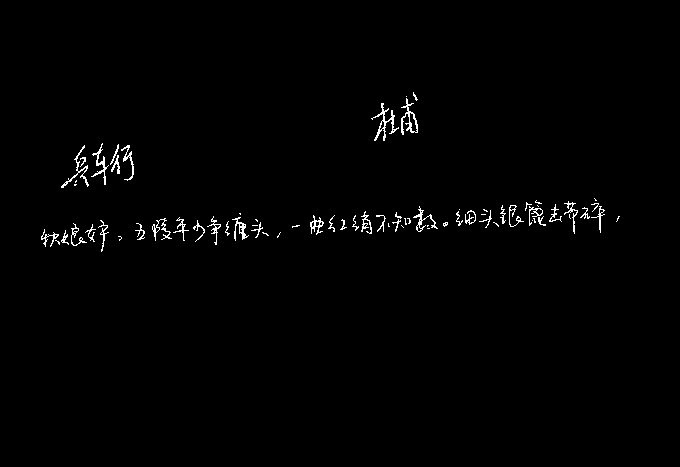 杜甫
兵车行
秋娘妒。五陵年少争缠头,一曲红绡不知数。细头银篦击节碎,